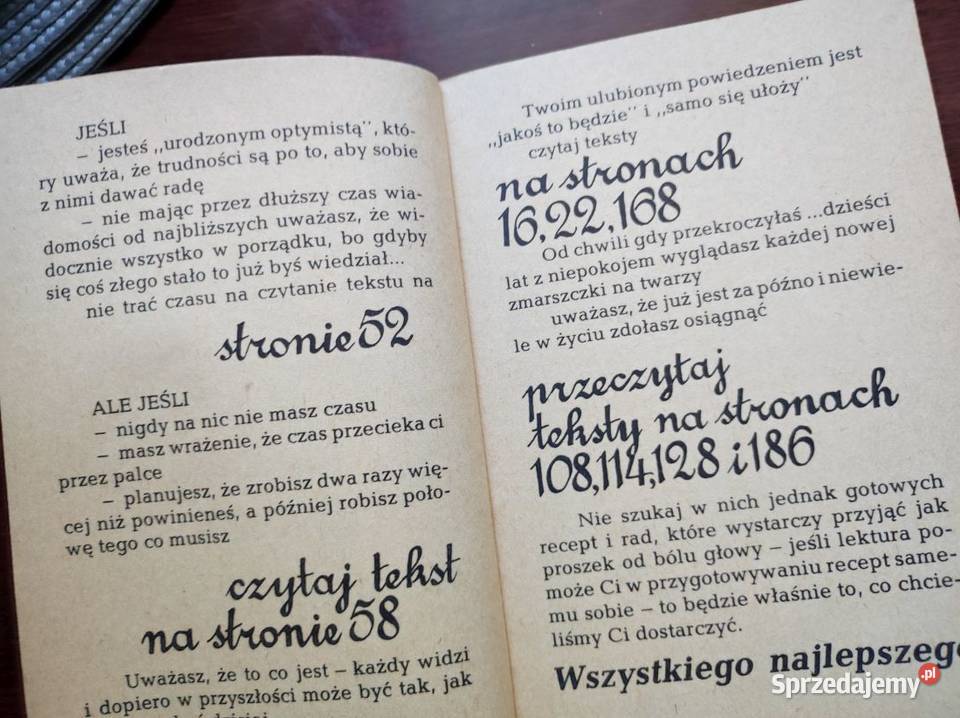 JEŚLI
– jesteś ,,urodzonym optymistą'', któ-
ry uważa, że trudności są po to, aby sobie
z nimi dawać radę
– nie mając przez dłuższy czas wia-
domości od najbliższych uważasz, że wi-
docznie wszystko w porządku, bo gdyby
się coś złego stało to już byś wiedział...
nie trać czasu na czytanie tekstu na
stronie 52
ALE JEŚLI
– nigdy na nic nie masz czasu
– masz wrażenie, że czas przecieka ci
przez palce
– planujesz, że zrobisz dwa razy wię-
cej niż powinieneś, a później robisz poło-
wę tego co musisz
czytaj tekst
na stronie 58
Uważasz, że to co jest – każdy widzi
i dopiero w przyszłości może być tak, jak
Twoim ulubionym powiedzeniem jest
,,jakoś to będzie'' i ,,samo się ułoży''
czytaj teksty
na stronach
16, 22, 168
Od chwili gdy przekroczyłaś ...dzieści
lat z niepokojem wyglądasz każdej nowej
zmarszczki na twarzy
uważasz, że już jest za późno i niewie-
le w życiu zdołasz osiągnąć
przeczytaj
teksty na stronach
108, 114, 128 i 186
Nie szukaj w nich jednak gotowych
recept i rad, które wystarczy przyjąć jak
proszek od bólu głowy – jeśli lektura po-
może Ci w przygotowywaniu recept same-
mu sobie – to będzie właśnie to, co chcie-
liśmy Ci dostarczyć.
Wszystkiego najlepszego
Sprzedajemy.pl